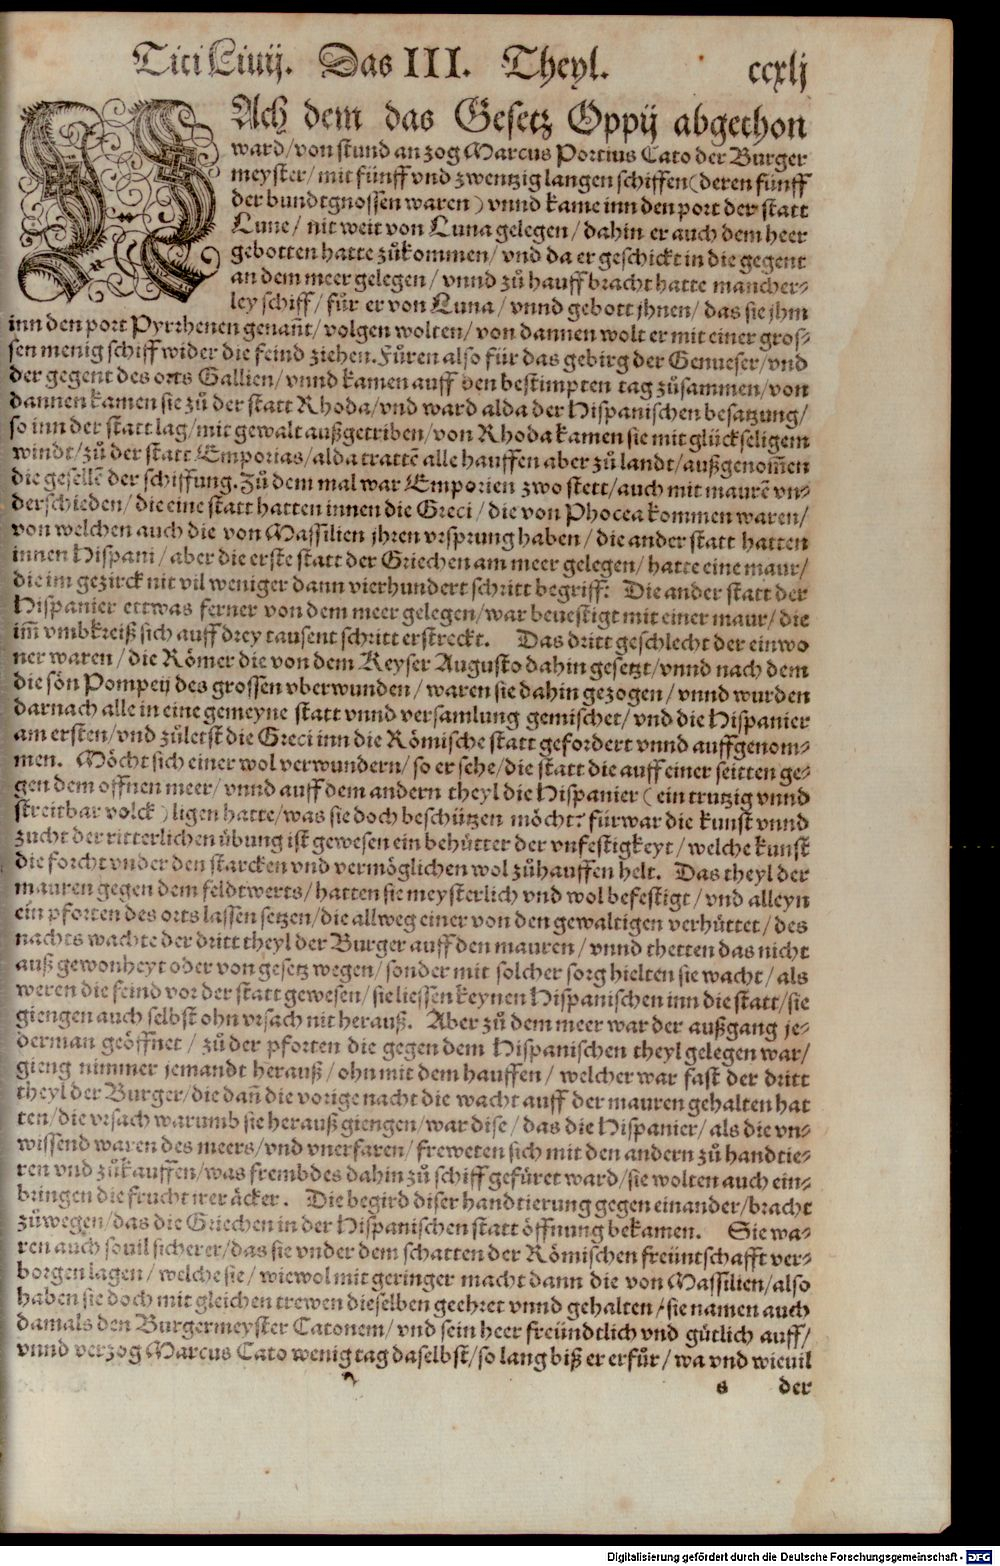 Titi Liuij. Das III. Theyl. ccxlj
NAch dem das Gesetz Oppij abgethon
ward/ von stund an zog Marcus Portius Cato der Burger
meyster/ mit fünff vnd zwentzig langen schiffen (deren fünff
der bundtgnossen waren) vnnd kame inn den port der statt
Lune/ nit weit von Luna gelegen/ dahin er auch dem heer
gebotten hatte zůkommen/ vnd da er geschickt in die gegent
an dem meer gelegen/ vnnd zů hauff bracht hatte mancher-
ley schiff/ für er von Luna/ vnnd gebott jhnen/ das sie jhm
inn den port Pyrrhenen genañt/ volgen wolten/ von dannen wolt er mit einer gros-
sen menig schiff wider die feind ziehen. Fůren also für das gebirg der Genueser/ vnd
der gegent des orts Gallien/ vnnd kamen auff den bestimpten tag zůsammen/ von
dannen kamen sie zů der statt Rhoda/ vnd ward alda der Hispanischen besatzung/
so inn der statt lag/ mit gewalt außgetriben/ von Rhoda kamen sie mit glückseligem
windt/ zů der statt Emporias/ alda trattẽ alle hauffen aber zů landt/ außgenom̃en
die gesellẽ der schiffung. Zů dem mal war Emporien zwo stett/ auch mit maurẽ vn-
derschieden/ die eine statt hatten innen die Greci/ die von Phocea kommen waren/
von welchen auch die von Massilien jhren vrsprung haben/ die ander statt hatten
innen Hispani/ aber die erste statt der Griechen am meer gelegen/ hatte eine maur/
die im gezirck nit vil weniger dann vierhundert schritt begriff: Die ander statt der
Hispanier ettwas ferner von dem meer gelegen/ war beuestigt mit einer maur/ die
im̃ vmbkreiß sich auff drey tausent schritt erstreckt. Das dritt geschlecht der einwo
ner waren/ die Römer die von dem Keyser Augusto dahin gesetzt/ vnnd nach dem
die sön Pompeij des grossen vberwunden/ waren sie dahin gezogen/ vnnd wurden
darnach alle in eine gemeyne statt vnnd versamlung gemischet/ vnd die Hispanier
am ersten/ vnd zůletst die Greci inn die Römische statt gefordert vnnd auffgenom-
men. Möcht sich einer wol verwundern/ so er sehe/ die statt die auff einer seitten ge-
gen dem offnen meer/ vnnd auff dem andern theyl die Hispanier (ein trutzig vnnd
streitbar volck) ligen hatte/ was sie doch beschützen möcht: fürwar die kunst vnnd
zucht der ritterlichen übung ist gewesen ein behütter der vnfestigkeyt/ welche kunst
die forcht vnder den starcken vnd vermöglichen wol zůhauffen helt. Das theyl der
mauren gegen dem feldtwerts/ hatten sie meysterlich vnd wol befestigt/ vnd alleyn
ein pforten des orts lassen setzen/ die allweg einer von den gewaltigen verhüttet/ des
nachts wachte der dritt theyl der Burger auff den mauren/ vnnd thetten das nicht
auß gewonheyt oder von gesetz wegen/ sonder mit solcher sorg hielten sie wacht/ als
weren die feind vor der statt gewesen/ sie liessen keynen Hispanischen inn die statt/ sie
giengen auch selbst ohn vrsach nit herauß. Aber zů dem meer war der außgang je-
derman geöffnet/ zů der pforten die gegen dem Hispanischen theyl gelegen war/
gieng nimmer jemandt herauß/ ohn mit dem hauffen/ welcher war fast der dritt
theyl der Burger/ die dañ die vorige nacht die wacht auff der mauren gehalten hat
ten/ die vrsach warumb sie herauß giengen/ war dise/ das die Hispanier/ als die vn-
wissend waren des meers/ vnd vnerfaren/ freweten sich mit den andern zů handtie-
ren vnd zůkauffen/ was frembdes dahin zů schiff gefüret ward/ sie wolten auch ein-
bringen die frucht irer äcker. Die begird diser handtierung gegen einander/ bracht
zůwegen/ das die Griechen in der Hispanischen statt öffnung bekamen. Sie wa-
ren auch souil sicherer/ das sie vnder dem schatten der Römischen freüntschafft ver-
borgen lagen/ welche sie/ wiewol mit geringer macht dann die von Massilien/ also
haben sie doch mit gleichen trewen dieselben geehret vnnd gehalten/ sie namen auch
damals den Burgermeyster Catonem/ vnd sein heer freündtlich vnd gütlich auff/
vnnd verzog Marcus Cato wenig tag daselbst/ so lang biß er erfůr/ wa vnd wieuil
s der
Digitalisierung gefördert durch die Deutsche Forschungsgemeinschaft - DFG